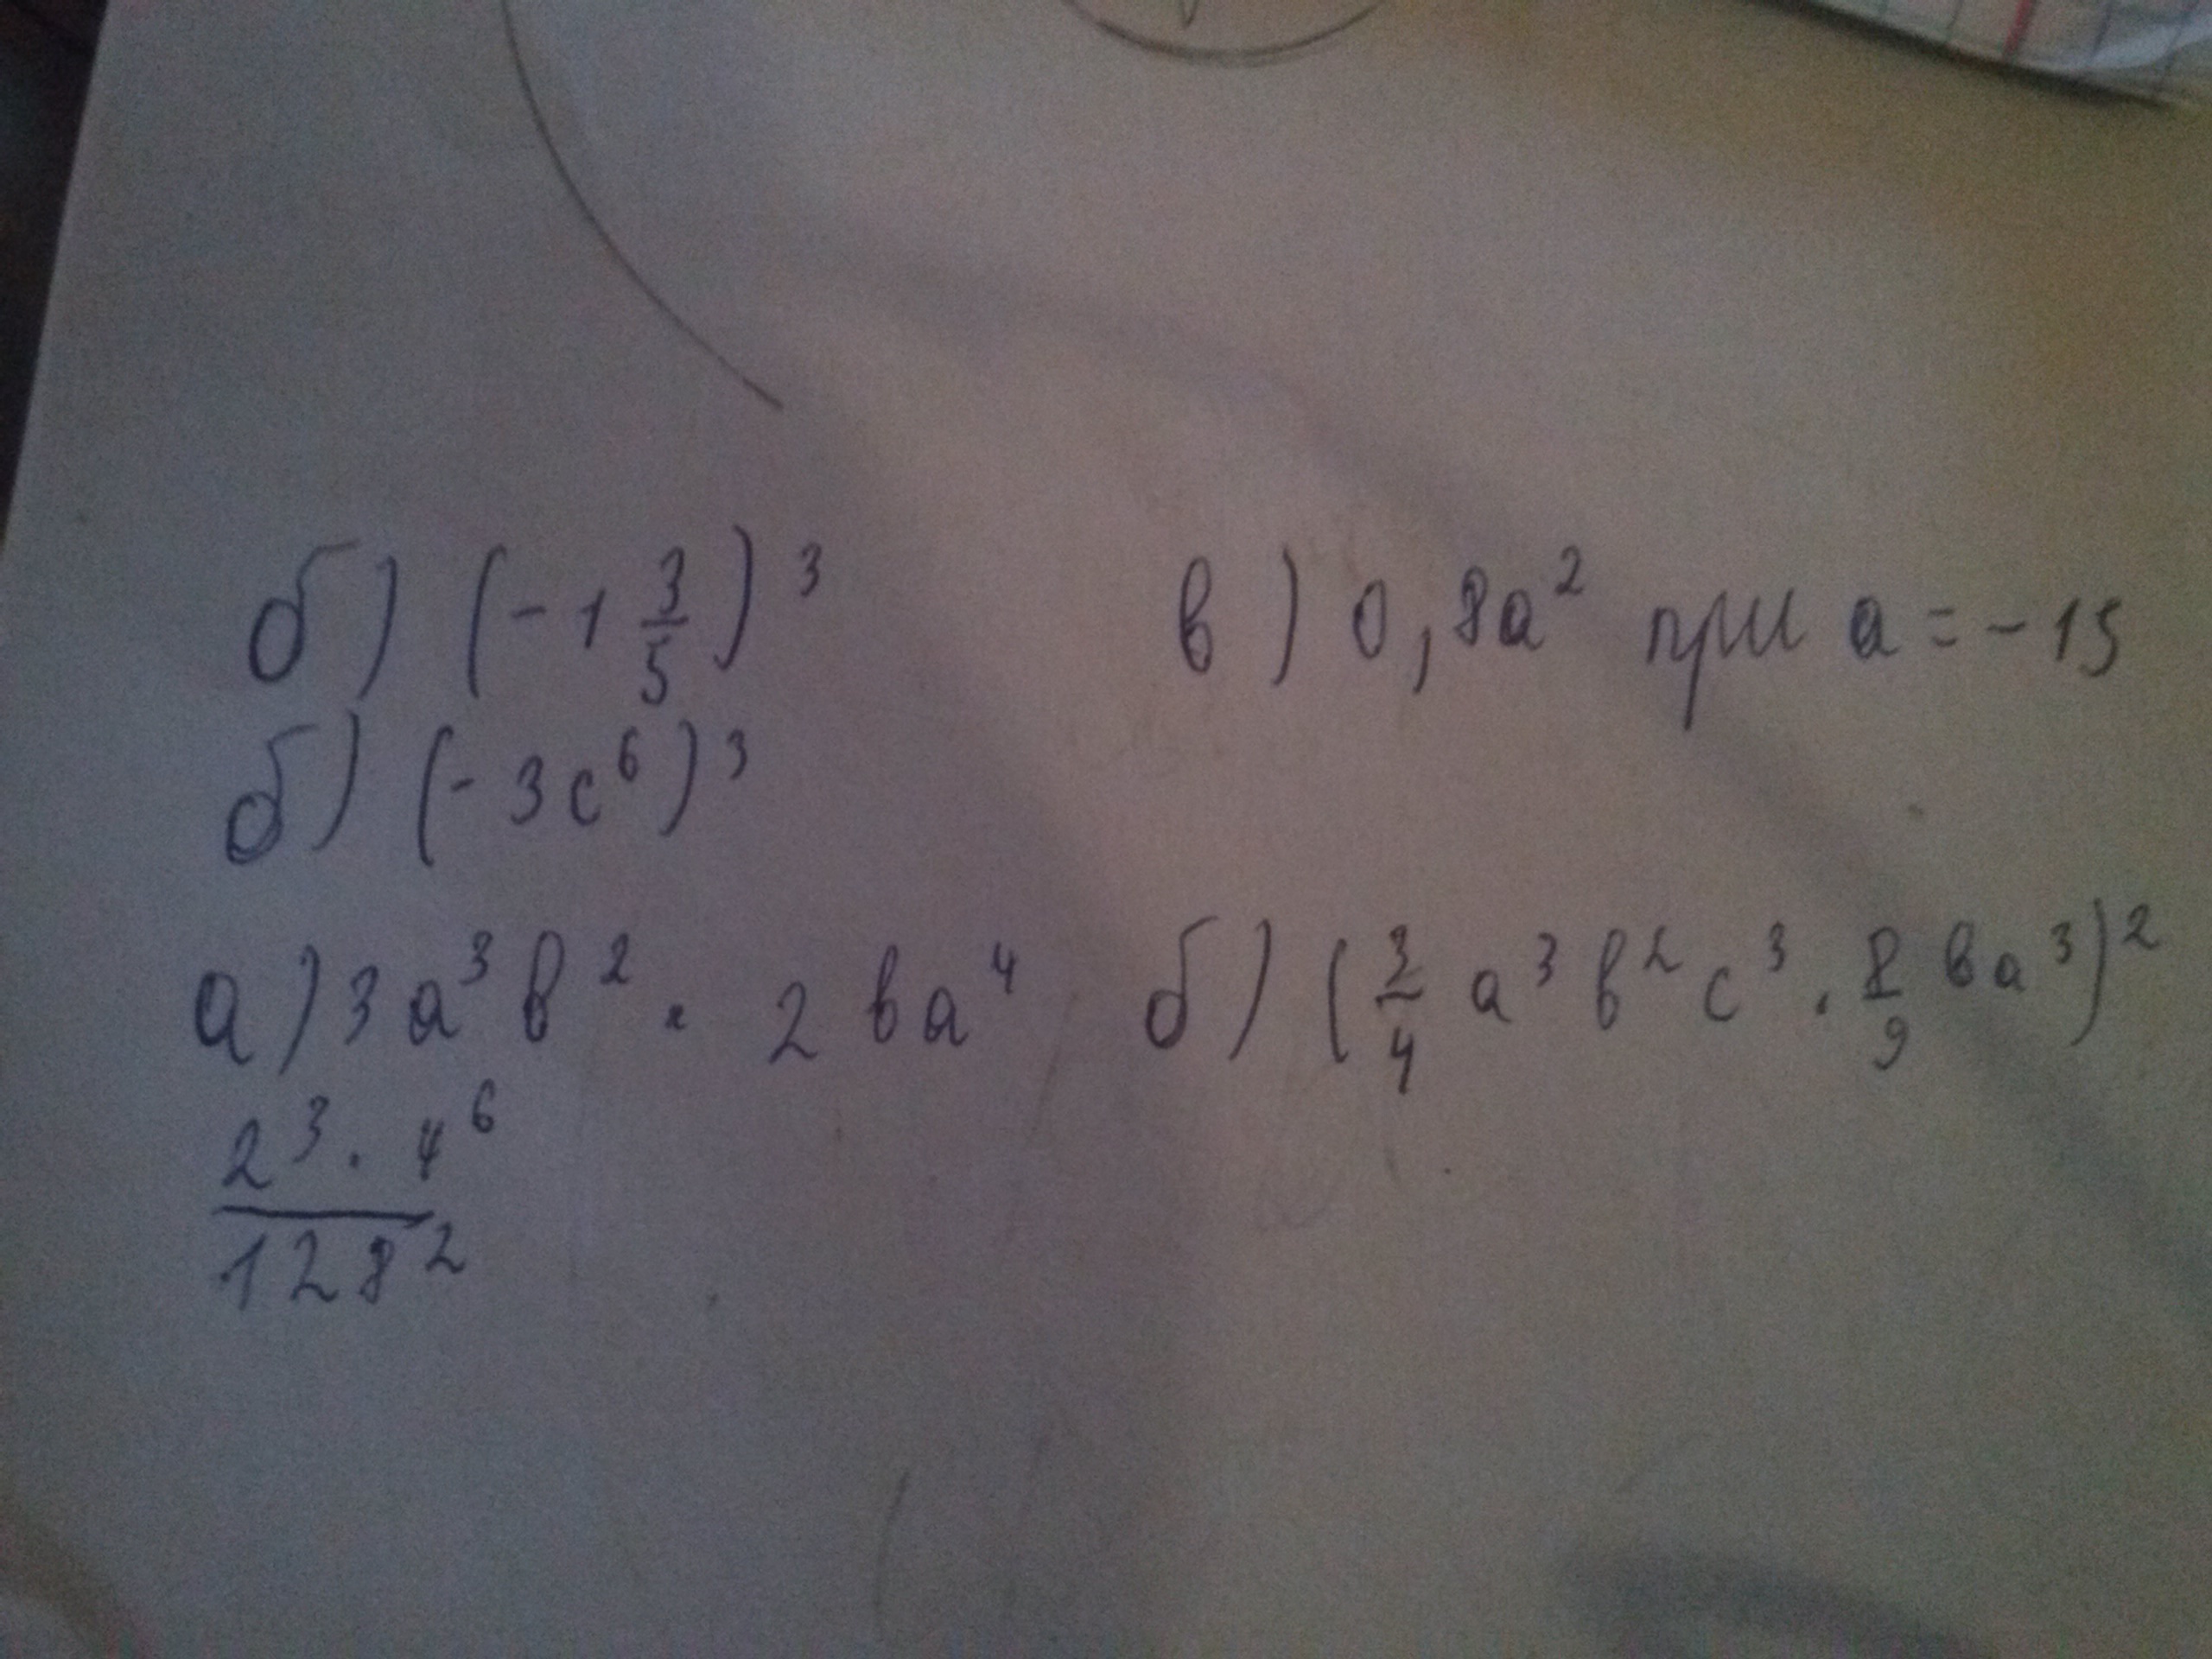 б) (-1 3/5)³ в) 0,8a² при a = -15
б) (-3c⁶)³
а) 3a³b² · 2ba⁴ б) (3/4 a³b²c³ · 8/9 ba³)²
2³ · 4⁶
128²